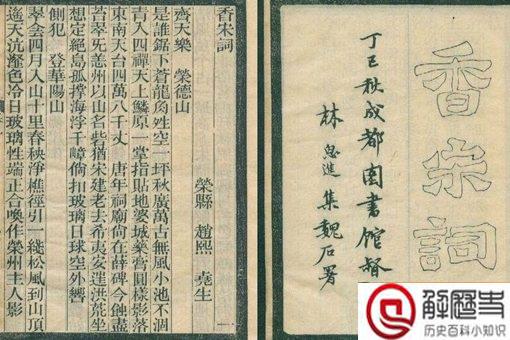 香宋詞
丁巳秋成都圖書館督
林思進集魏石署
香宋詞
榮縣 趙熙 堯生
齊天樂 榮德山
是誰鋸下蒼龍角空一坪秋廣萬古無風小池不涸
青入四禪天上鱗原一掌指貼地婆城藥膏圓樣影落
東南天台四萬八千丈 唐年祠廟尚在薛碑今蝕盡
苔翠旡恙州以山名砦猶宋建老去希夷安洪荒坐
想定絕島孤撐海浮千嶂倘扣玻璃日球空外響
側犯 登華陽山
翠雲四月入山十里春秧淨樵徑引一綫松風到山頂
遙天沆瀣色冷日玻璃性端正合喚作榮州主人影
一
解歷史
历史百科小知识